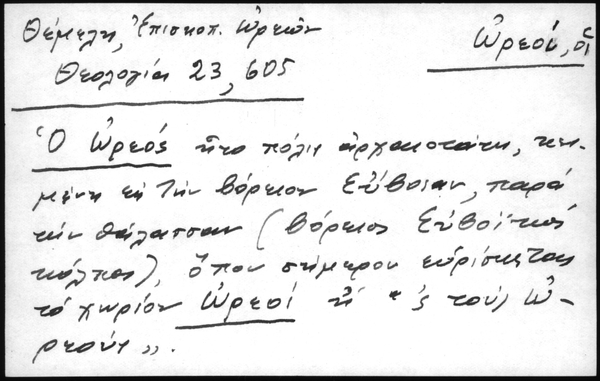 Θέμελη, Ἐπισκοπ. Ὠρεῶν
Ὠρεοί, οἱ
Θεολογία 23, 605
Ὁ Ὠρεός ἦτο πόλις ἀρχαιοτάτη, κει-
μένη εἰς τὴν βόρειον Εὔβοιαν, παρά
τὴν θάλασσαν (βόρειος Εὐβοϊκός
κόλπος), ὅπου σήμερον εὑρίσκεται
τό χωρίον Ὠρεοί ἤ "ς τούς Ὠ-
ρεούς».